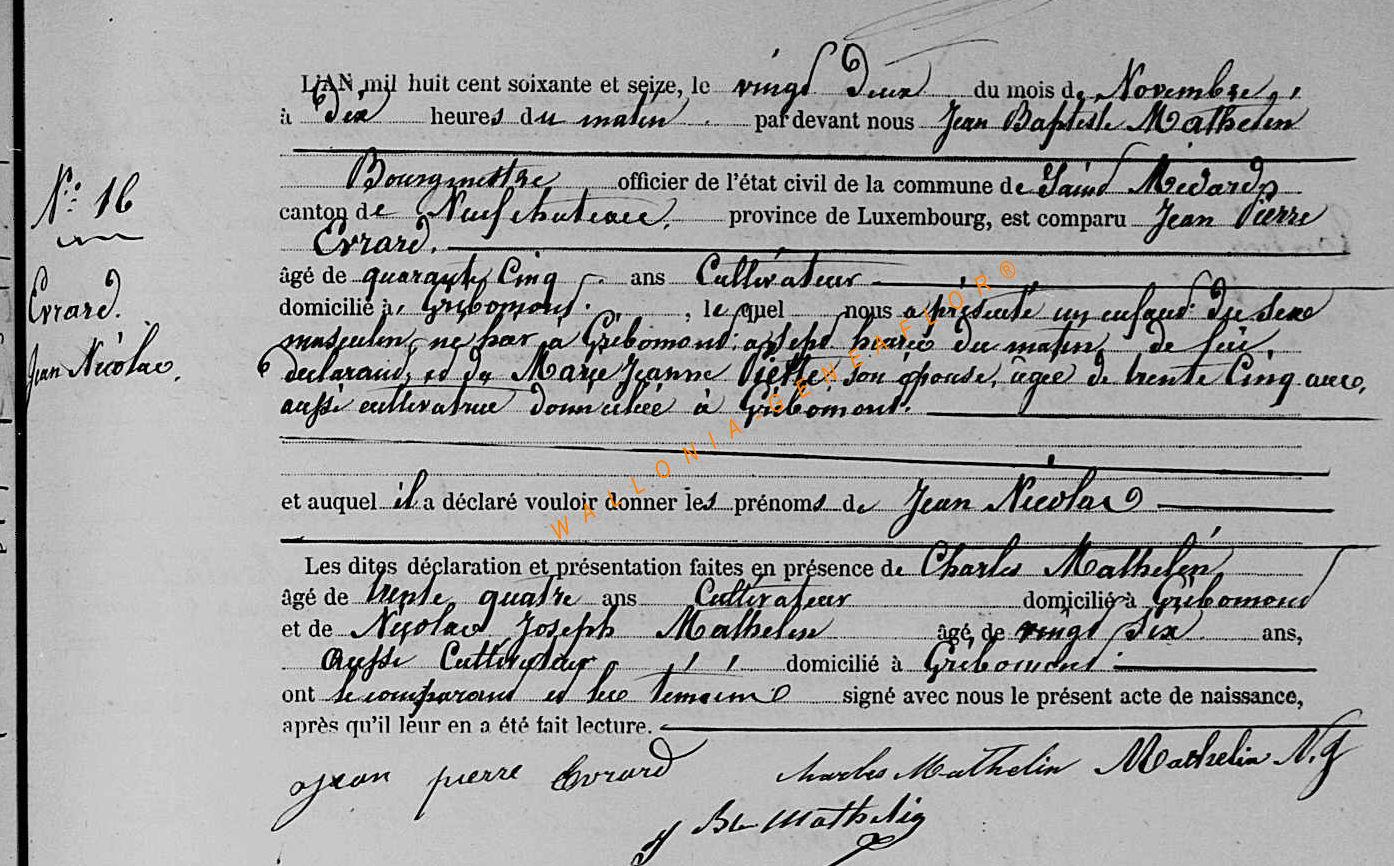 N° 16
Evrard.
Jean Nicolas.
L'AN mil huit cent soixante et seize, le vingt deux du mois de Novembre,
à Dix heures du matin par devant nous Jean Baptiste Mathelin
Bourgmestre officier de l'état civil de la commune de Saint Médard
canton de Neufchateau, province de Luxembourg, est comparu Jean Pierre
Evrard.
âgé de quarante Cinq ans Cultivateur
domicilié à Gribomont, lequel nous a présenté un enfant du sexe
masculin, né à Gribomont, à sept heures du matin de lui
déclarant, et de Marie Jeanne Pierre son épouse, âgée de trente Cinq ans,
aussi cultivatrice domiciliée à Gribomont.
et auquel il a déclaré vouloir donner les prénoms de Jean Nicolas
Les dites déclaration et présentation faites en présence de Charles Mathelin
âgé de trente quatre ans Cultivateur domicilié à Gribomont
et de Nicolas Joseph Mathelin âgé de vingt six ans,
Aussi Cultivateur domicilié à Gribomont
ont le comparant et les témoins signé avec nous le présent acte de naissance,
après qu'il leur en a été fait lecture.
Jean pierre Evrard Charles Mathelin Mathelin N. J
J Bte Mathelin
WALLONIA-GENEAFLOR®